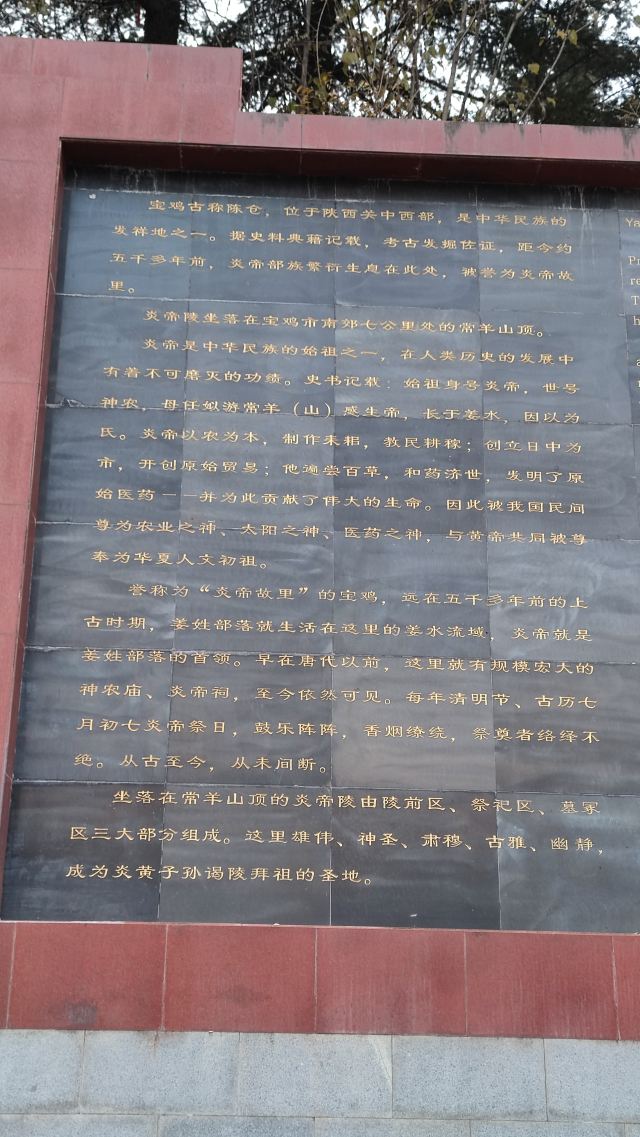 宝鸡古称陈仓，位于陕西关中西部，是中华民族的
发祥地之一。据史料典籍记载，考古发掘佐证，距今约
五千多年前，炎帝部族繁衍生息在此处，被誉为炎帝故
里。
炎帝陵坐落在宝鸡市南郊七公里处的常羊山顶。
炎帝是中华民族的始祖之一，在人类历史的发展中
有着不可磨灭的功绩。史书记载：始祖身号炎帝，世号
神农，母任姒游常羊（山）感生帝，长于姜水，因以为
氏。炎帝以农为本，制作耒耜，教民耕稼；创立日中为
市，开创原始贸易；他遍尝百草，和药济世，发明了原
始医药——并为此贡献了伟大的生命。因此被我国民间
尊为农业之神、太阳之神、医药之神，与黄帝共同被尊
奉为华夏人文初祖。
誉称为“炎帝故里”的宝鸡，远在五千多年前的上
古时期，姜姓部落就生活在这里的姜水流域，炎帝就是
姜姓部落的首领。早在唐代以前，这里就有规模宏大的
神农庙、炎帝祠，至今依然可见。每年清明节、古历七
月初七炎帝祭日，鼓乐阵阵，香烟缭绕，祭奠者络绎不
绝。从古至今，从未间断。
坐落在常羊山顶的炎帝陵由陵前区、祭祀区、墓冢
区三大部分组成。这里雄伟、神圣、肃穆、古雅、幽静，
成为炎黄子孙谒陵拜祖的圣地。